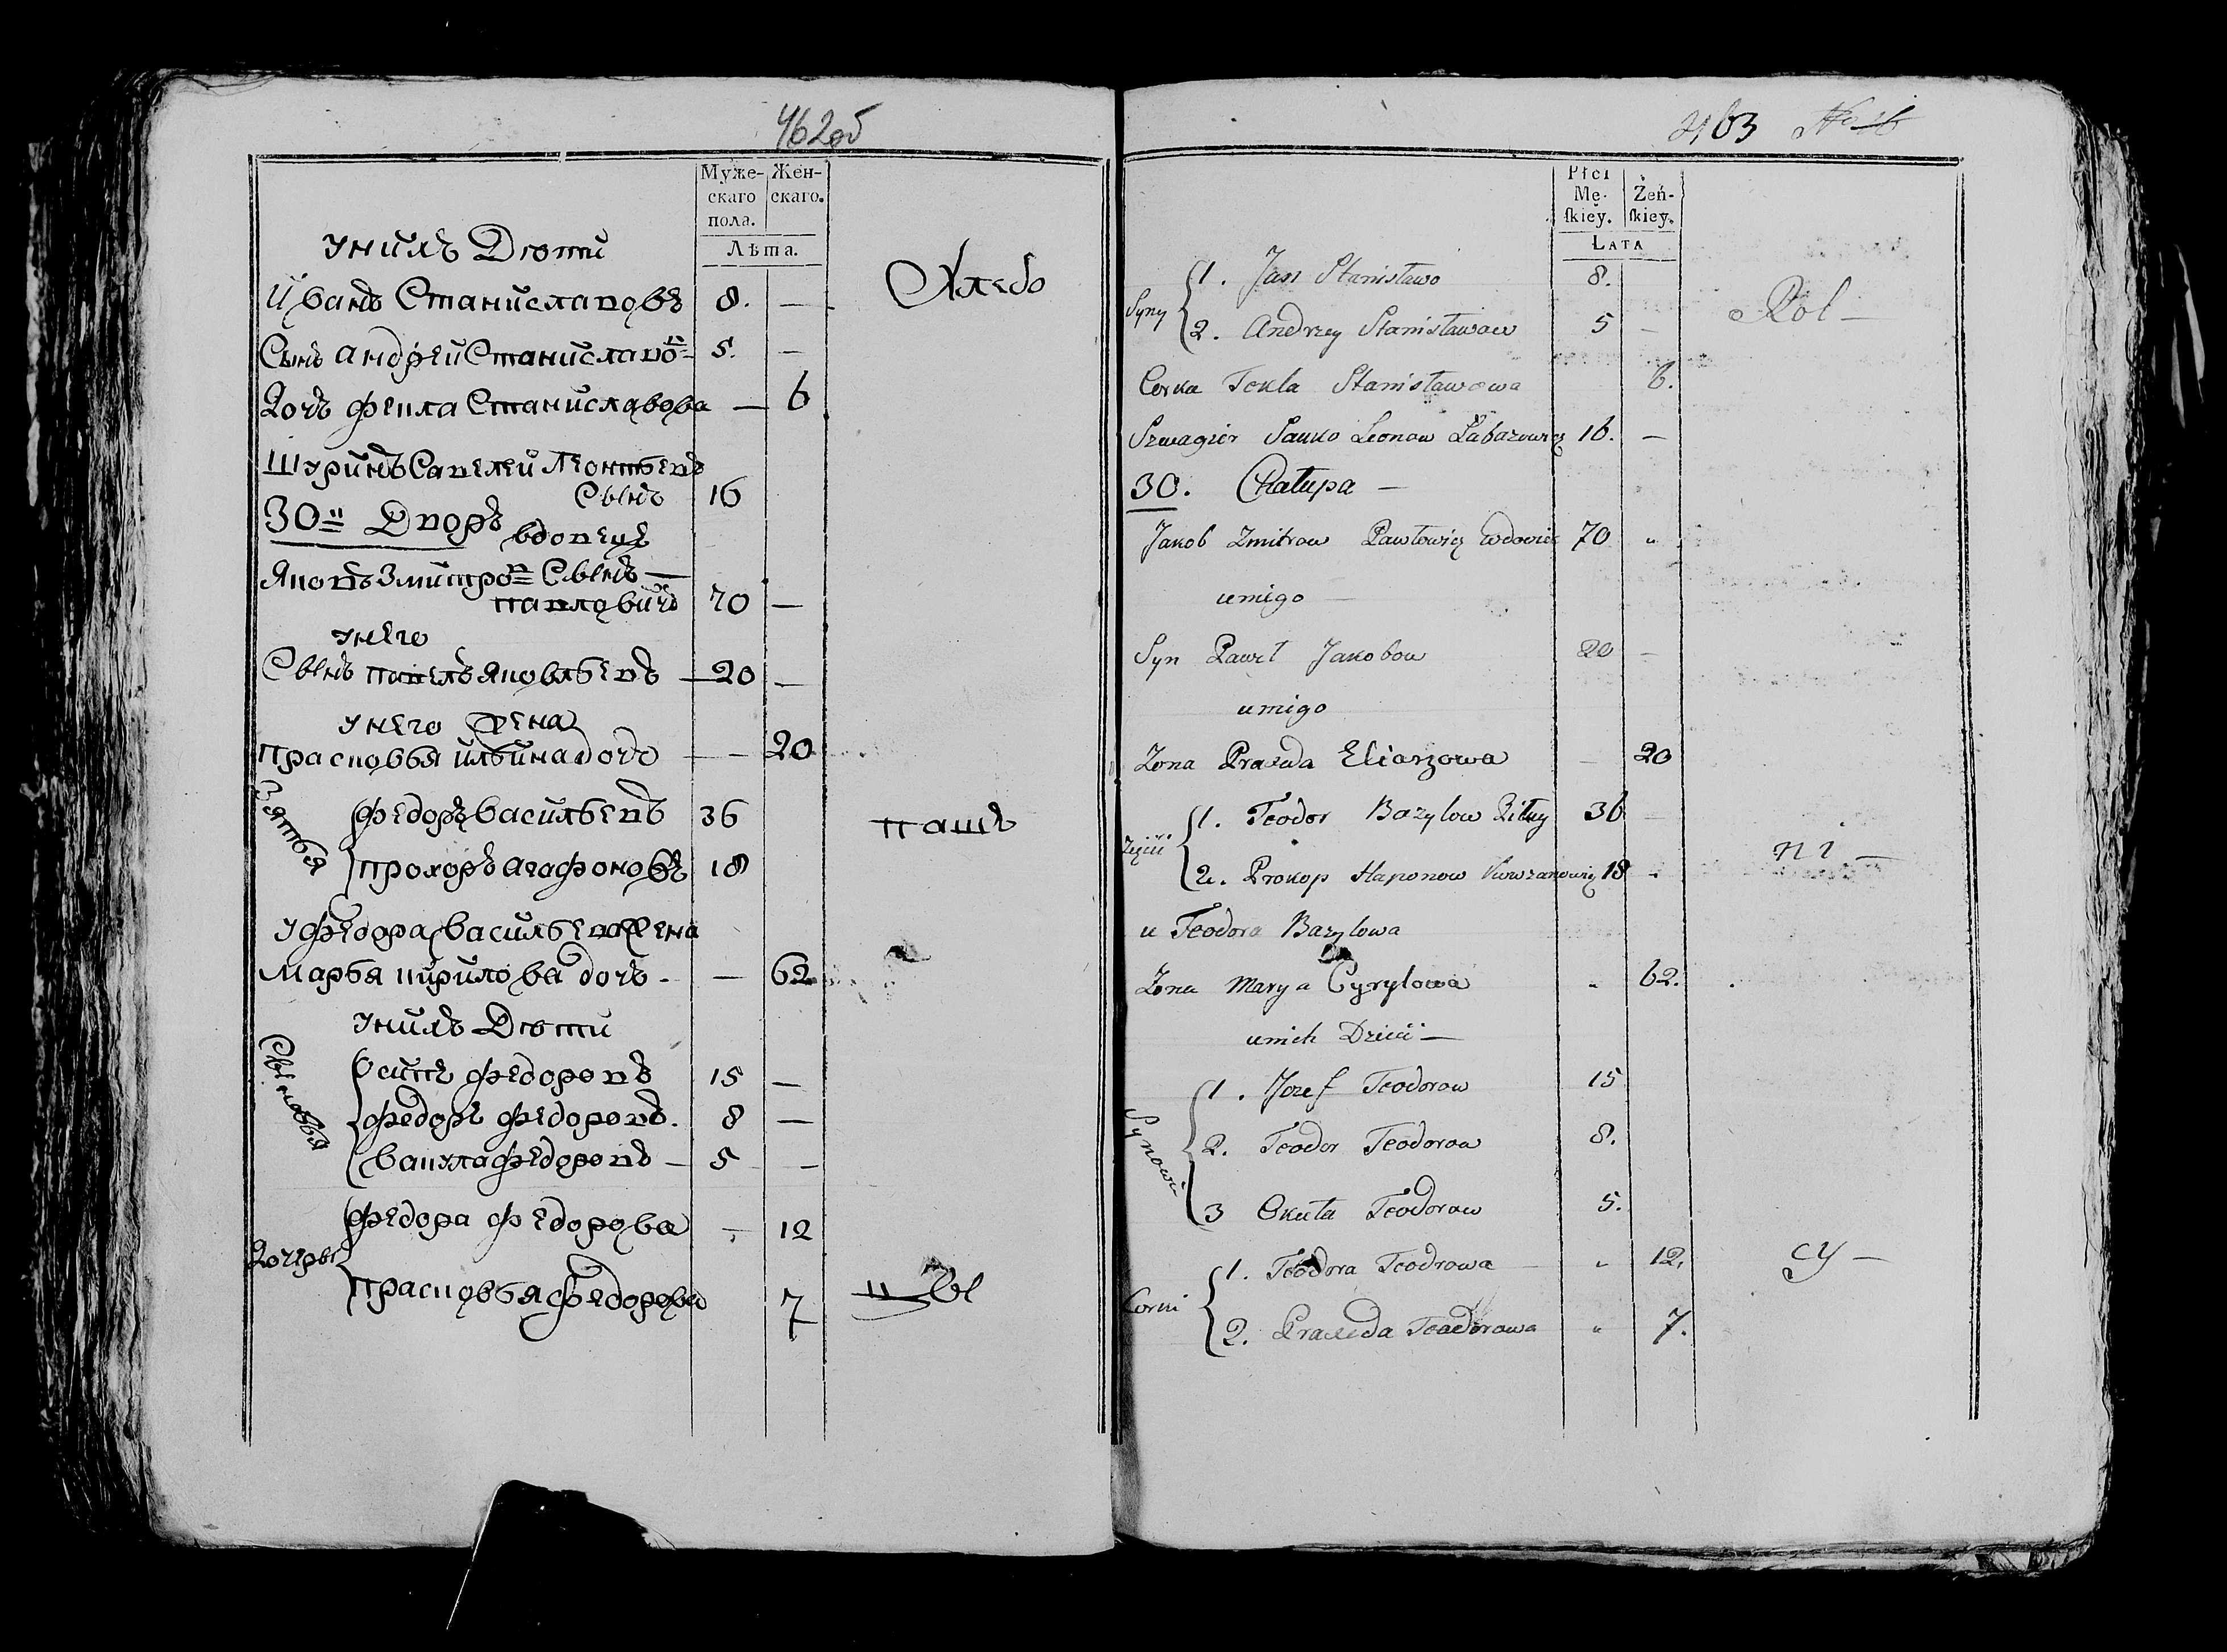 462об
Муже- Жен-
скаго скаго.
пола.
Лѣта.
У нихъ Дѣти
Иванъ Станиславовъ 8. —
Хлебо
Сынъ Андрей Станиславо въ 5. —
Дочь Фекла Станиславова — 6
Шуринъ Савелей Леонтьевъ
Сынъ 16
30й Дворъ
вдовецъ
Яковъ Змитровъ Сынъ —
Павловичъ 70 —
У него
Сынъ Павелъ Яковлевъ — 20 —
У него жена
Прасковья Ильина дочь — — 20
Зятья
Федоръ Васильевъ 36
пашъ
Прохоръ Агафоновъ 18
У Федора Васильева жена
Марья Кирилова дочь. — 62
У нихъ Дѣти
Сыновья
Осипъ Федоровъ 15 —
Федоръ Федоровъ. 8 —
Вакула Федоровъ — 5 —
Дочеры
Федора Федорова — 12
Прасковья Федорова 7
цы
463 No 16
Płci
Mę- Żeń-
ſkiey. ſkiey.
Lata
Syny
1. Jan Stanisławo 8.
Rol —
2. Andrzey Stanisławow 5 —
Corka Tekla Stanisławowa 6.
Szwagier Sawko Leonow Łabazowicz 16. —
30. Chałupa —
Jakob Zmitrow Pawłowicz Wdowiec 70 "
u niego —
Syn Paweł Jakobow 20 —
u niego
Zona Praxeda Eliaszowa — 20
Zięcie
1. Teodor Bazylow 36 —
ni —
2. Prokop Haponow 18 -
u Teodora Bazylowa
Zona Marya Cyrylowa - 62.
u nich Dzieci —
Synowie
1. Jozef Teodorow 15
2. Teodor Teodorow 8.
3 Okuła Teodorow 5.
Corki
1. Teodora Teodrowa " 12.
cy —
2. Praxeda Teodorowa " 7.